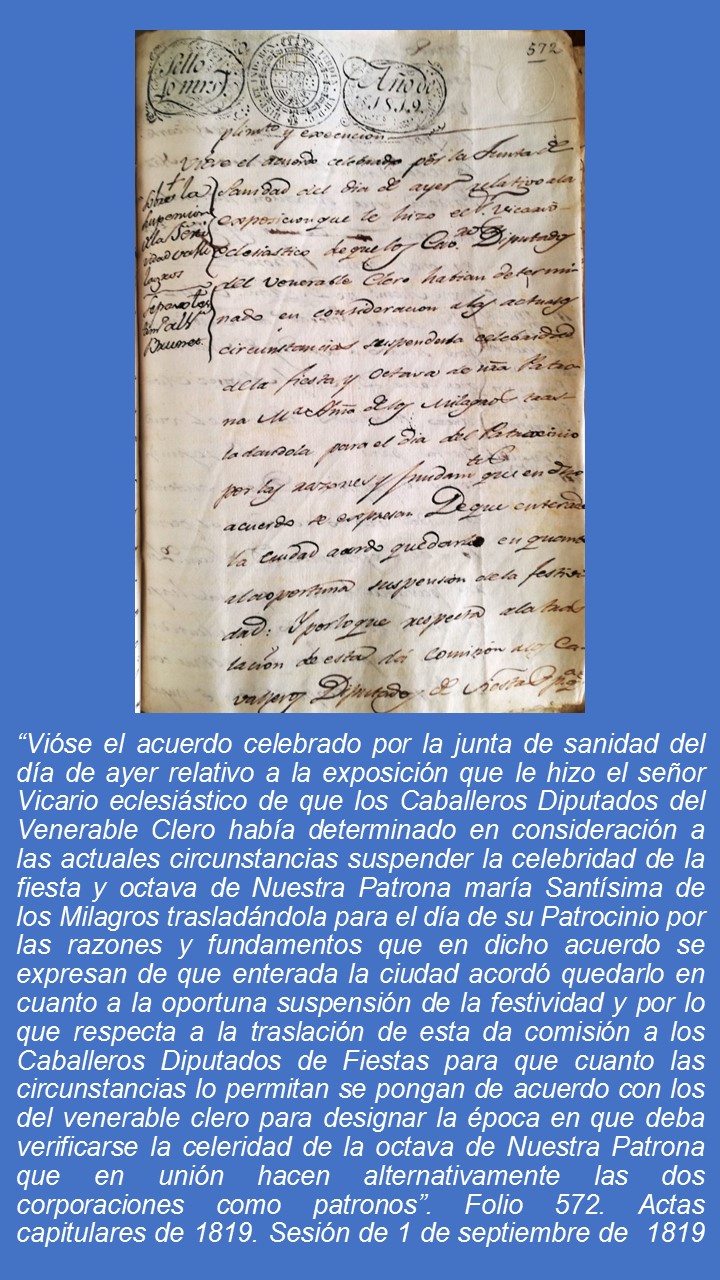 Sello
40 mrs.
Año de
1819.
572
plimto. y execucion
Viose el acuerdo celebrado por la Junta de
Sanidad del dia de ayer relativo a la
exposicion que le hizo el Sr. Vicario
eclesiastico de que los Cavos. Diputados
del Venerable Clero habian determi
nado en consideracion a las actuales
circunstancias suspender la celebridad
de la fiesta y Octava de nra Patro
na Ma. Sma. de los Milagros tras
ladandola para el dia del Patrocinio
por las razones y fundamtos. que en dho
acuerdo se expresan De que enterada
la Ciudad acordó quedarlo en quanto
a la oportuna suspension de la festivi
dad: Y por lo que respecta a la tras
lacion de esta dá comision a los Ca-
valleros Diputados de Fiestas pa. qe.
Sobre la
suspension
de la Festi
vidad de Mi
lagros
“Vióse el acuerdo celebrado por la junta de sanidad del
día de ayer relativo a la exposición que le hizo el señor
Vicario eclesiástico de que los Caballeros Diputados del
Venerable Clero había determinado en consideración a
las actuales circunstancias suspender la celebridad de la
fiesta y octava de Nuestra Patrona maría Santísima de
los Milagros trasladándola para el día de su Patrocinio por
las razones y fundamentos que en dicho acuerdo se
expresan de que enterada la ciudad acordó quedarlo en
cuanto a la oportuna suspensión de la festividad y por lo
que respecta a la traslación de esta da comisión a los
Caballeros Diputados de Fiestas para que cuanto las
circunstancias lo permitan se pongan de acuerdo con los
del venerable clero para designar la época en que deba
verificarse la celeridad de la octava de Nuestra Patrona
que en unión hacen alternativamente las dos
corporaciones como patronos”. Folio 572. Actas
capitulares de 1819. Sesión de 1 de septiembre de 1819